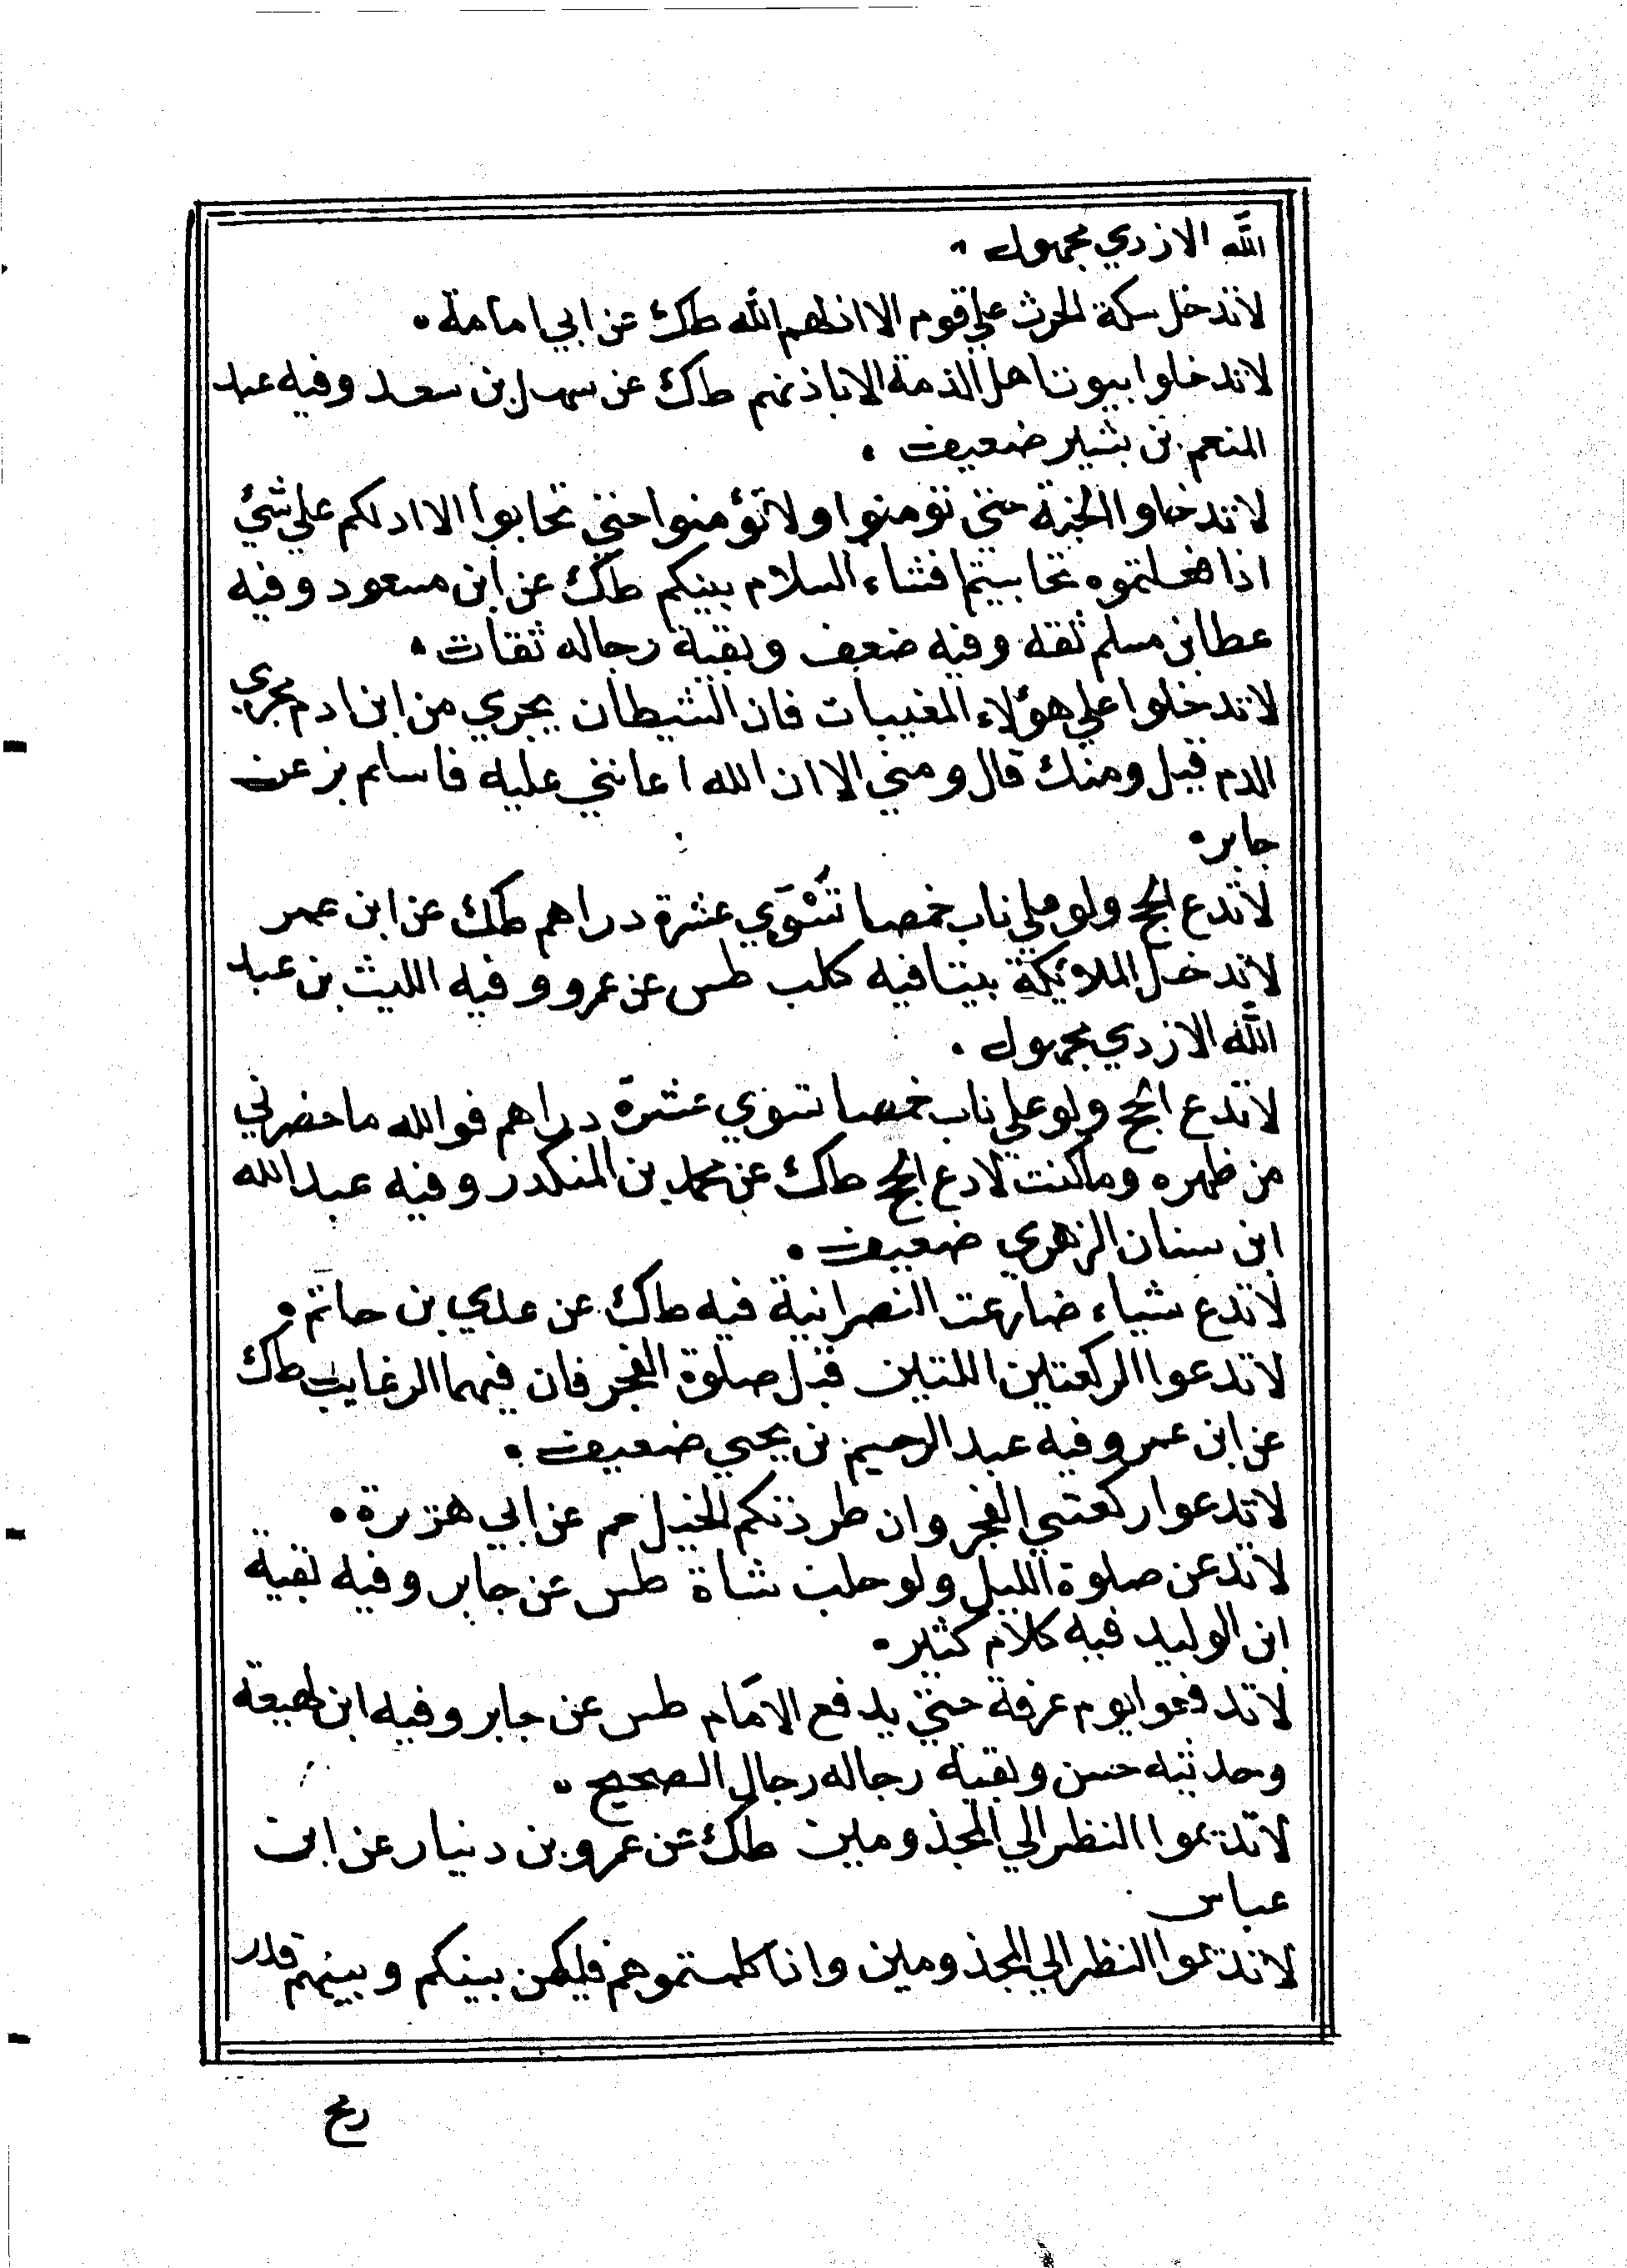 الله الازدي مجهول
لا تدخل سكة الحرث علي قوم الا اذلهم الله طك عن ابي امامة
لا تدخلوا بيوت اهل الذمة الا باذنهم طك عن سهل بن سعد وفيه عبد
المنعم بن بشير ضعيف
لا تدخلوا الجنة حتي تومنوا ولا تؤمنوا حتي تحابوا الا ادلكم علي شئ
اذا فعلتموه تحاببتم افشاء السلام بينكم طك عن ابن مسعود وفيه
عطا بن مسلم ثقة وفيه ضعف وبقية رجاله ثقات
لا تدخلوا علي هؤلاء المغيبات فان الشيطان يجري من ابن ادم مجري
الدم قيل ومنك قال ومني الا ان الله اعانني عليه فاسلم بز عن
جابر
لا تدع الحج ولو علي ناب خمصا تسوي عشرة دراهم طك عن ابن عمر
لا تدخل الملائكة بيتا فيه كلب طس عن عمرو وفيه الليث بن عبد
الله الازدي مجهول
لا تدع الحج ولو علي ناب خمصا تسوي عشرة دراهم فوالله ما حضرني
من ظهره وما كنت لادع الحج طك عن محمد بن المنكدر وفيه عبد الله
ابن سنان الزهري ضعيف
لا تدع شياء ضارعت النصرانية فيه طك عن عدي بن حاتم
لا تدعوا الركعتين اللتين قبل صلوة الفجر فان فيهما الرغايب طك
عن ابن عمر وفيه عبد الرحيم بن يحيي ضعيف
لا تدعوا ركعتي الفجر وان طردتكم الخيل حم عن ابي هريرة
لا تدعن صلوة الليل ولو حلب شاة طس عن جابر وفيه بقية
ابن الوليد فيه كلام كثير
لا تدفعوا يوم عرفة حتي يدفع الامام طس عن جابر وفيه ابن لهيعة
وحديثه حسن وبقية رجاله رجال الصحيح
لا تديموا النظر الي المجذومين طك عن عمرو بن دينار عن ابن
عباس
لا تديموا النظر الي المجذومين واذا كلمتموهم فليكن بينكم وبينهم قدر
رمح